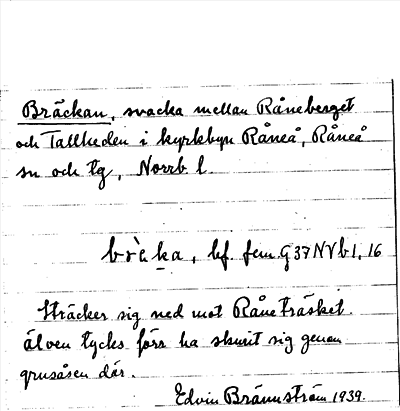 Bräckan, svacka mellan Råneberget
och Tallheden i kyrkbyn Råneå, Råneå
sn och tg, Norrb l.
bf. fem. G37NVb1,16
sträcker sig ned mot Råneträsket.
älven tycks förr ha skurit sig genom
grusåsen där.
Edvin Brännström 1939.